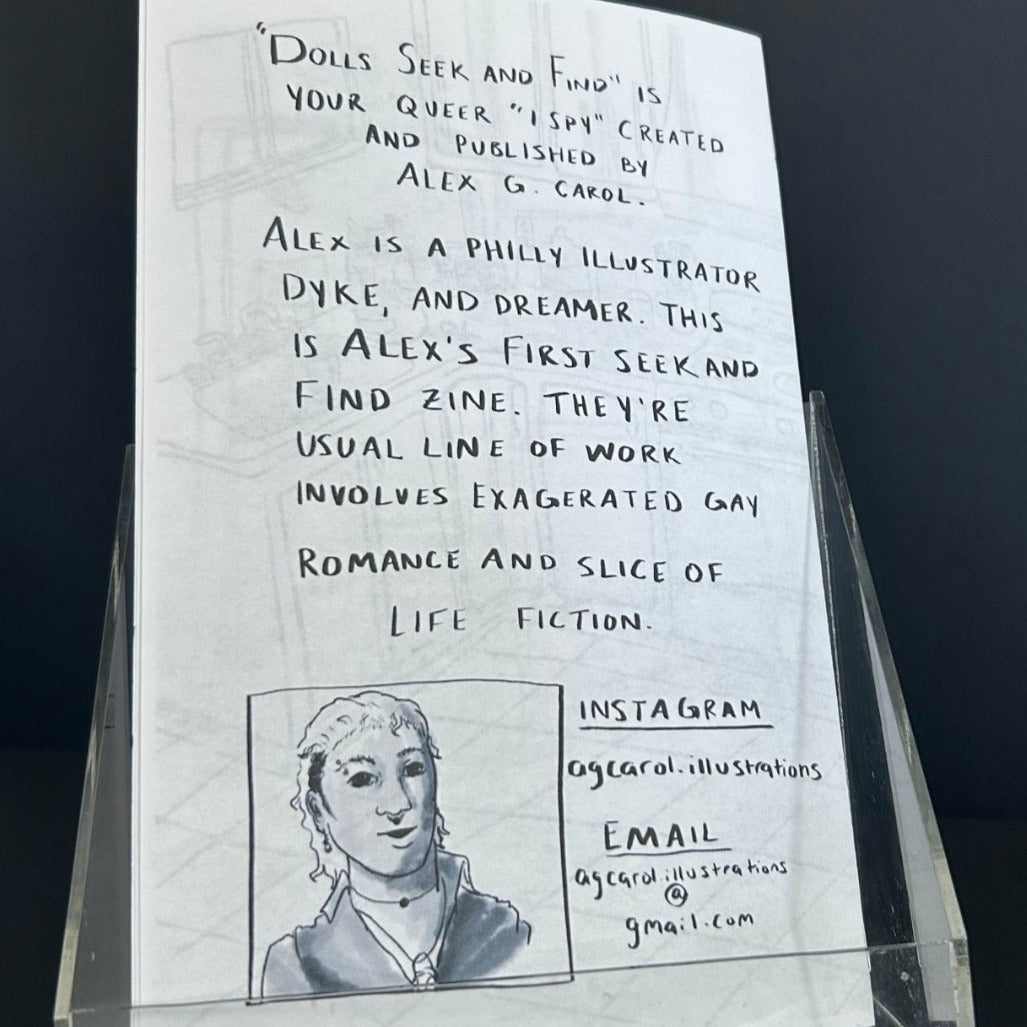 "DOLLS SEEK AND FIND" IS
YOUR QUEER "I SPY" CREATED
AND PUBLISHED BY
ALEX G. CAROL.
ALEX IS A PHILLY ILLUSTRATOR
DYKE, AND DREAMER. THIS
IS ALEX'S FIRST SEEK AND
FIND ZINE. THEY'RE
USUAL LINE OF WORK
INVOLVES EXAGERATED GAY
ROMANCE AND SLICE OF
LIFE FICTION.
INSTAGRAM
agcarol.illustrations
EMAIL
agcarol.illustrations
@
gmail.com